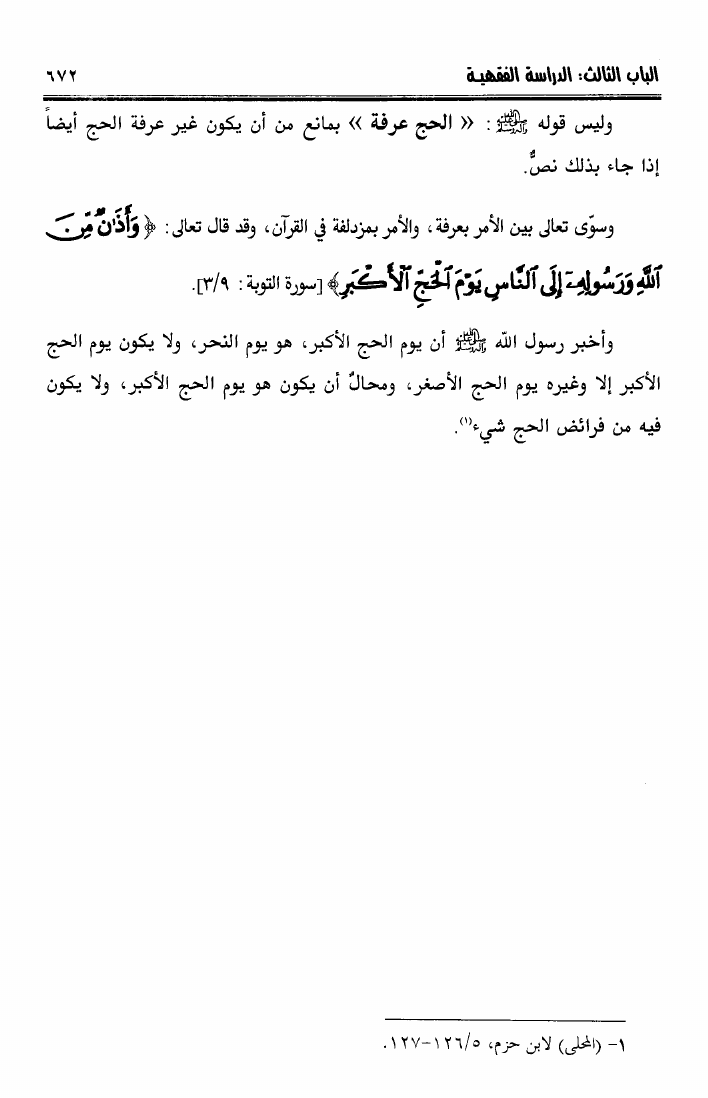 الباب الثالث: الدراسة الفقهية ٦٧٢
وليس قوله ﷺ : « الحج عرفة » بمانع من أن يكون غير عرفة الحج أيضاً
إذا جاء بذلك نصٌّ.
وسوّى تعالى بين الأمر بعرفة، والأمر بمزدلفة في القرآن، وقد قال تعالى: ﴿ وَأَذَٰنٌ مِّنَ
ٱللَّهِ وَرَسُولِهِۦٓ إِلَى ٱلنَّاسِ يَوْمَ ٱلْحَجِّ ٱلْأَكْبَرِ﴾ [سورة التوبة: ٣/٩].
وأخبر رسول الله ﷺ أن يوم الحج الأكبر، هو يوم النحر، ولا يكون يوم الحج
الأكبر إلا وغيره يوم الحج الأصغر، ومحالٌ أن يكون هو يوم الحج الأكبر، ولا يكون
فيه من فرائض الحج شيء(١).
١- (المحلى) لابن حزم، ١٢٦/٥-١٢٧.